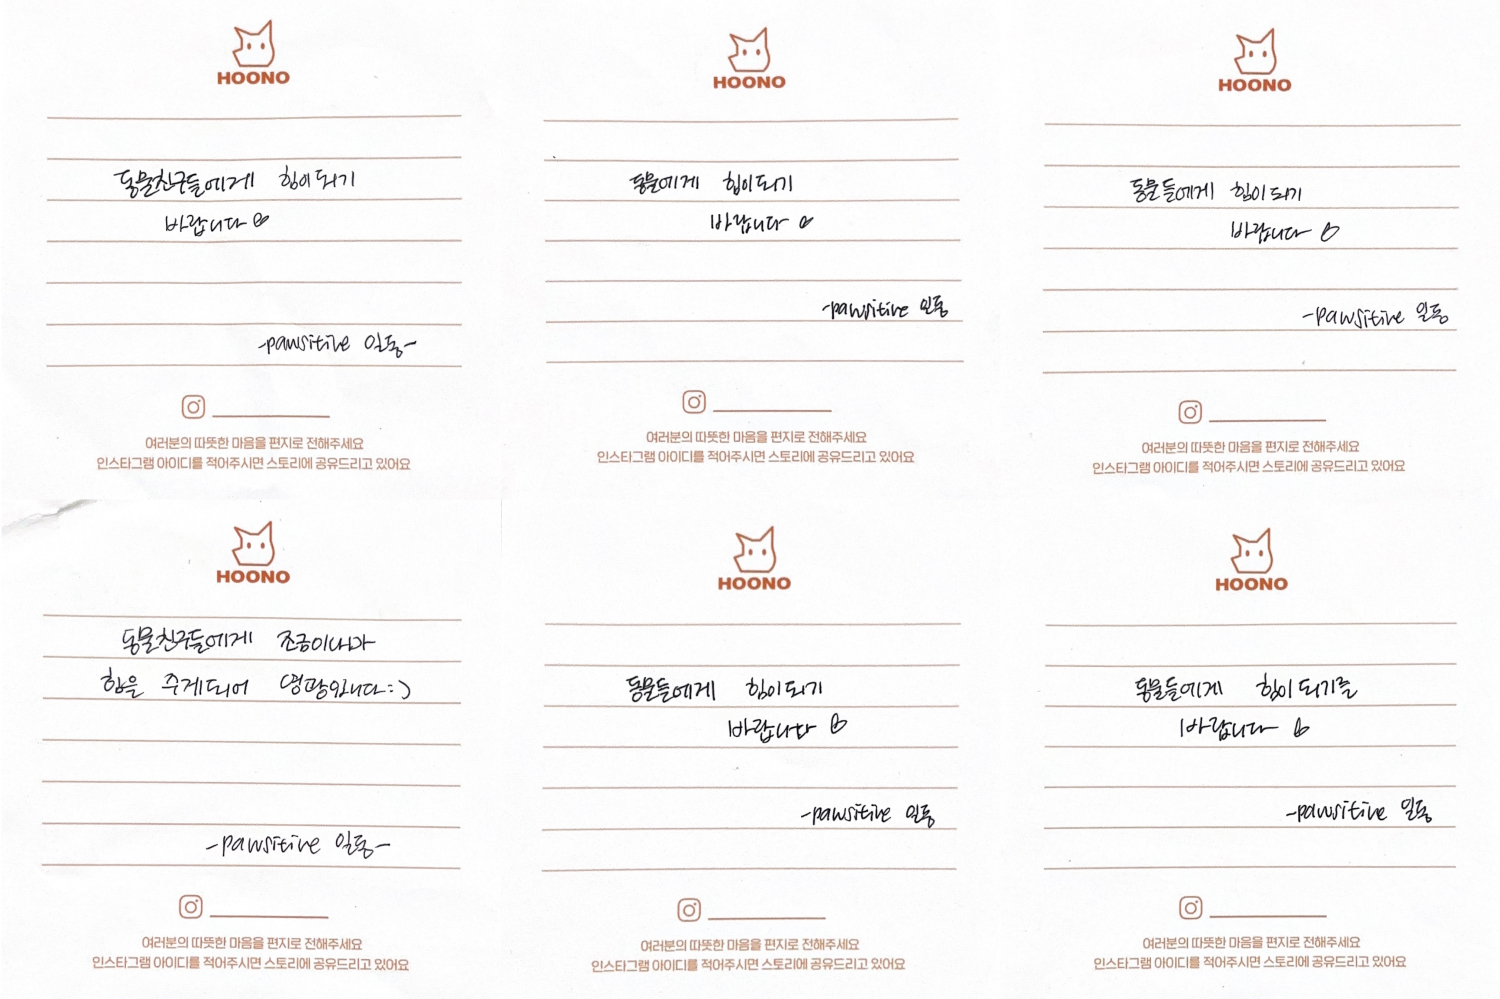 HOONO
동물친구들에게 힘이되기
바랍니다
-pawsitive 일동-
여러분의 따뜻한 마음을 편지로 전해주세요
인스타그램 아이디를 적어주시면 스토리에 공유드리고 있어요
HOONO
동물에게 힘이되기
바랍니다
-pawsitive 일동
여러분의 따뜻한 마음을 편지로 전해주세요
인스타그램 아이디를 적어주시면 스토리에 공유드리고 있어요
HOONO
동물들에게 힘이되기
바랍니다
-pawsitive 일동
여러분의 따뜻한 마음을 편지로 전해주세요
인스타그램 아이디를 적어주시면 스토리에 공유드리고 있어요
HOONO
동물친구들에게 조금이나마
힘을 주게되어 영광입니다:)
-pawsitive 일동-
여러분의 따뜻한 마음을 편지로 전해주세요
인스타그램 아이디를 적어주시면 스토리에 공유드리고 있어요
HOONO
동물들에게 힘이되기
바랍니다
-pawsitive 일동
여러분의 따뜻한 마음을 편지로 전해주세요
인스타그램 아이디를 적어주시면 스토리에 공유드리고 있어요
HOONO
동물들에게 힘이되기를
바랍니다
-pawsitive 일동
여러분의 따뜻한 마음을 편지로 전해주세요
인스타그램 아이디를 적어주시면 스토리에 공유드리고 있어요